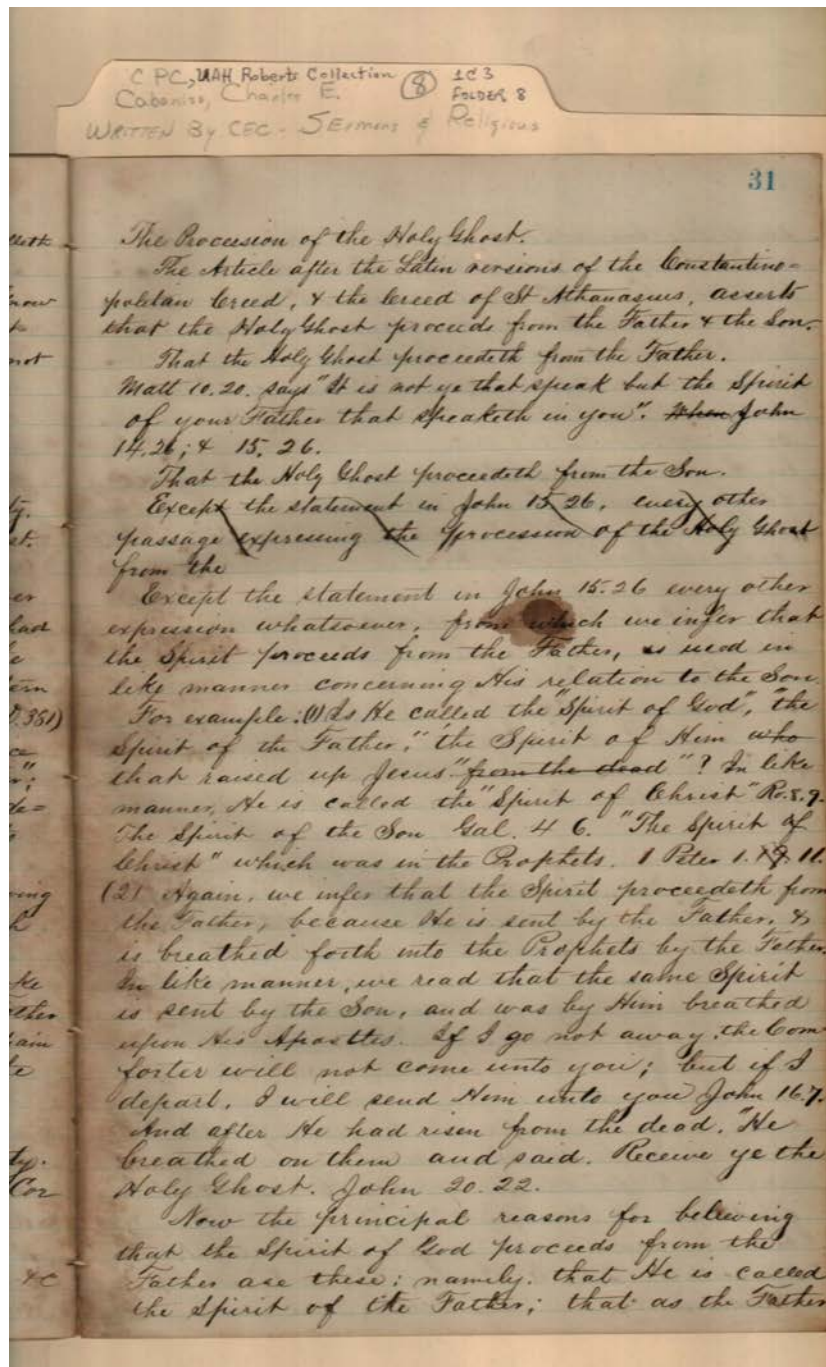 C PC, UAH Roberts Collection 8 1C3
Cabaniss, Charles E. FOLDER 8
WRITTEN By CEC - SErmons & Religious
31
The Procession of the Holy Ghost.
The Article after the Latin versions of the Constantino=
politan Creed, & the Creed of St Athanasius, asserts
that the Holy Ghost proceeds from the Father & the Son.
That the Holy Ghost proceedeth from the Father.
Matt 10.20. says "It is not ye that speak but the Spirit
of your Father that speaketh in you". When John
14.26; & 15.26.
That the Holy Ghost proceedeth from the Son.
Except the statement in John 15.26, every other
passage expressing the procession of the Holy Ghost
from the
Except the statement in John 15.26 every other
expression whatsoever, from which we infer that
the Spirit proceeds from the Father, is used in
like manner concerning His relation to the Son.
For example: (1) Is He called the "Spirit of God", "the
Spirit of the Father," "the Spirit of Him who
that raised up Jesus" from the dead"? In like
manner, He is called the "Spirit of Christ" Ro.8.9.
The Spirit of the Son Gal. 4 6. "The Spirit of
Christ" which was in the Prophets. 1 Peter 1. 11.
(2) Again, we infer that the Spirit proceedeth from
the Father, because He is sent by the Father, &
is breathed forth into the Prophets by the Father.
In like manner, we read that the same Spirit
is sent by the Son, and was by Him breathed
upon His Apostles. If I go not away, the Com
forter will not come unto you; but if I
depart, I will send Him unto you John 16.7.
And after He had risen from the dead, "He
breathed on them and said. Receive ye the
Holy Ghost. John 20.22.
Now the principal reasons for believing
that the Spirit of God proceeds from the
Father are these: namely, that He is called
the Spirit of the Father; that as the Father
now
not
ty.
er
had
tern
D.381)
ce
de=
ving
ke
ther
ain
te
ty.
Cor
&C